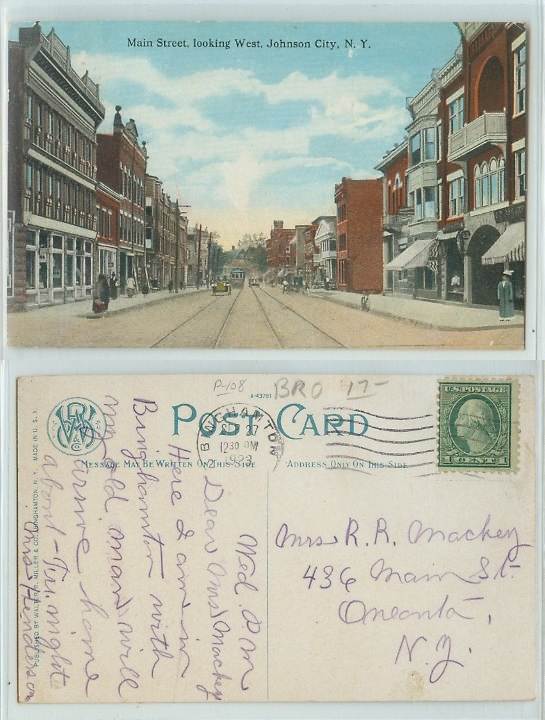 Main Street, looking West, Johnson City, N. Y.
P-108
A-43701
BRO 17-
POST CARD
MESSAGE MAY BE WRITTEN ON THIS SIDE
ADDRESS ONLY ON THIS SIDE
BINGHAMTON
1230 PM
1923
U.S. POSTAGE
1 CENT 1
MADE IN U.S.A.
PUBLISHED BY WALTER R. MILLER & CO. BINGHAMTON, N.Y.
Wed P M
Dear Mrs Mackey
Here I am in
Binghamton with
my old man will
arrive home
about Fri. night
Mrs Henderson
Mrs R. R. Mackey
436 Main St.
Oneonta,
N. Y.